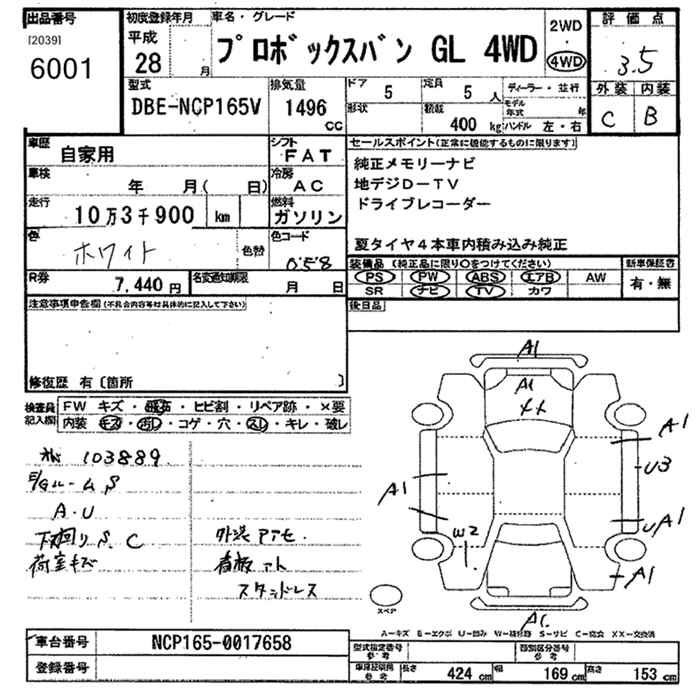 出品番号
[2039]
6001
初度登録年月
平成
28 月
車名・グレード
プロボックスバン GL 4WD
2WD
4WD
評価点
3.5
外装 内装
C B
型式
DBE-NCP165V
排気量
1496
CC
ドア
5
定員
5 人
形状
積載
400 kg
ディーラー・並行
モデル年式 年
ハンドル 左・右
車歴
自家用
シフト
FAT
車検
年 月( 日)
冷房
AC
走行
10万3千900 km
燃料
ガソリン
色
ホワイト
色替
色コード
058
R券
7,440 円
名変通知期限
月 日
セールスポイント(正常に機能するものに限ります)
純正メモリーナビ
地デジD-TV
ドライブレコーダー
夏タイヤ4本車内積み込み純正
装備品 (純正品に限り○をつけてください)
PS PW ABS エアB AW
SR ナビ TV カワ
新車保証書
有・無
後日品
注意事項申告欄(不具合内容等は具体的に記入して下さい)
修復歴 有〔箇所 〕
検査員記入欄
FW キズ・飛石・ヒビ割・リペア跡・×要
内装 キズ・汚レ・コゲ・穴・スレ・キレ・破レ
103889
E/gルームS
A・U
下廻りS、C
荷室キズ
外装アセ
看板アト
スタッドレス
A1
A1
4人
A1
U3
A1
UA1
W2
A1
A1
スペア
A-キズ B-エクボ U-凹み W-補修跡 S-サビ C-腐食 XX-交換済
車台番号
NCP165-0017658
登録番号
型式指定番号
参考
類別区分番号
参考
車庫証明用
参考
長さ 424 cm
幅 169 cm
高さ 153 cm